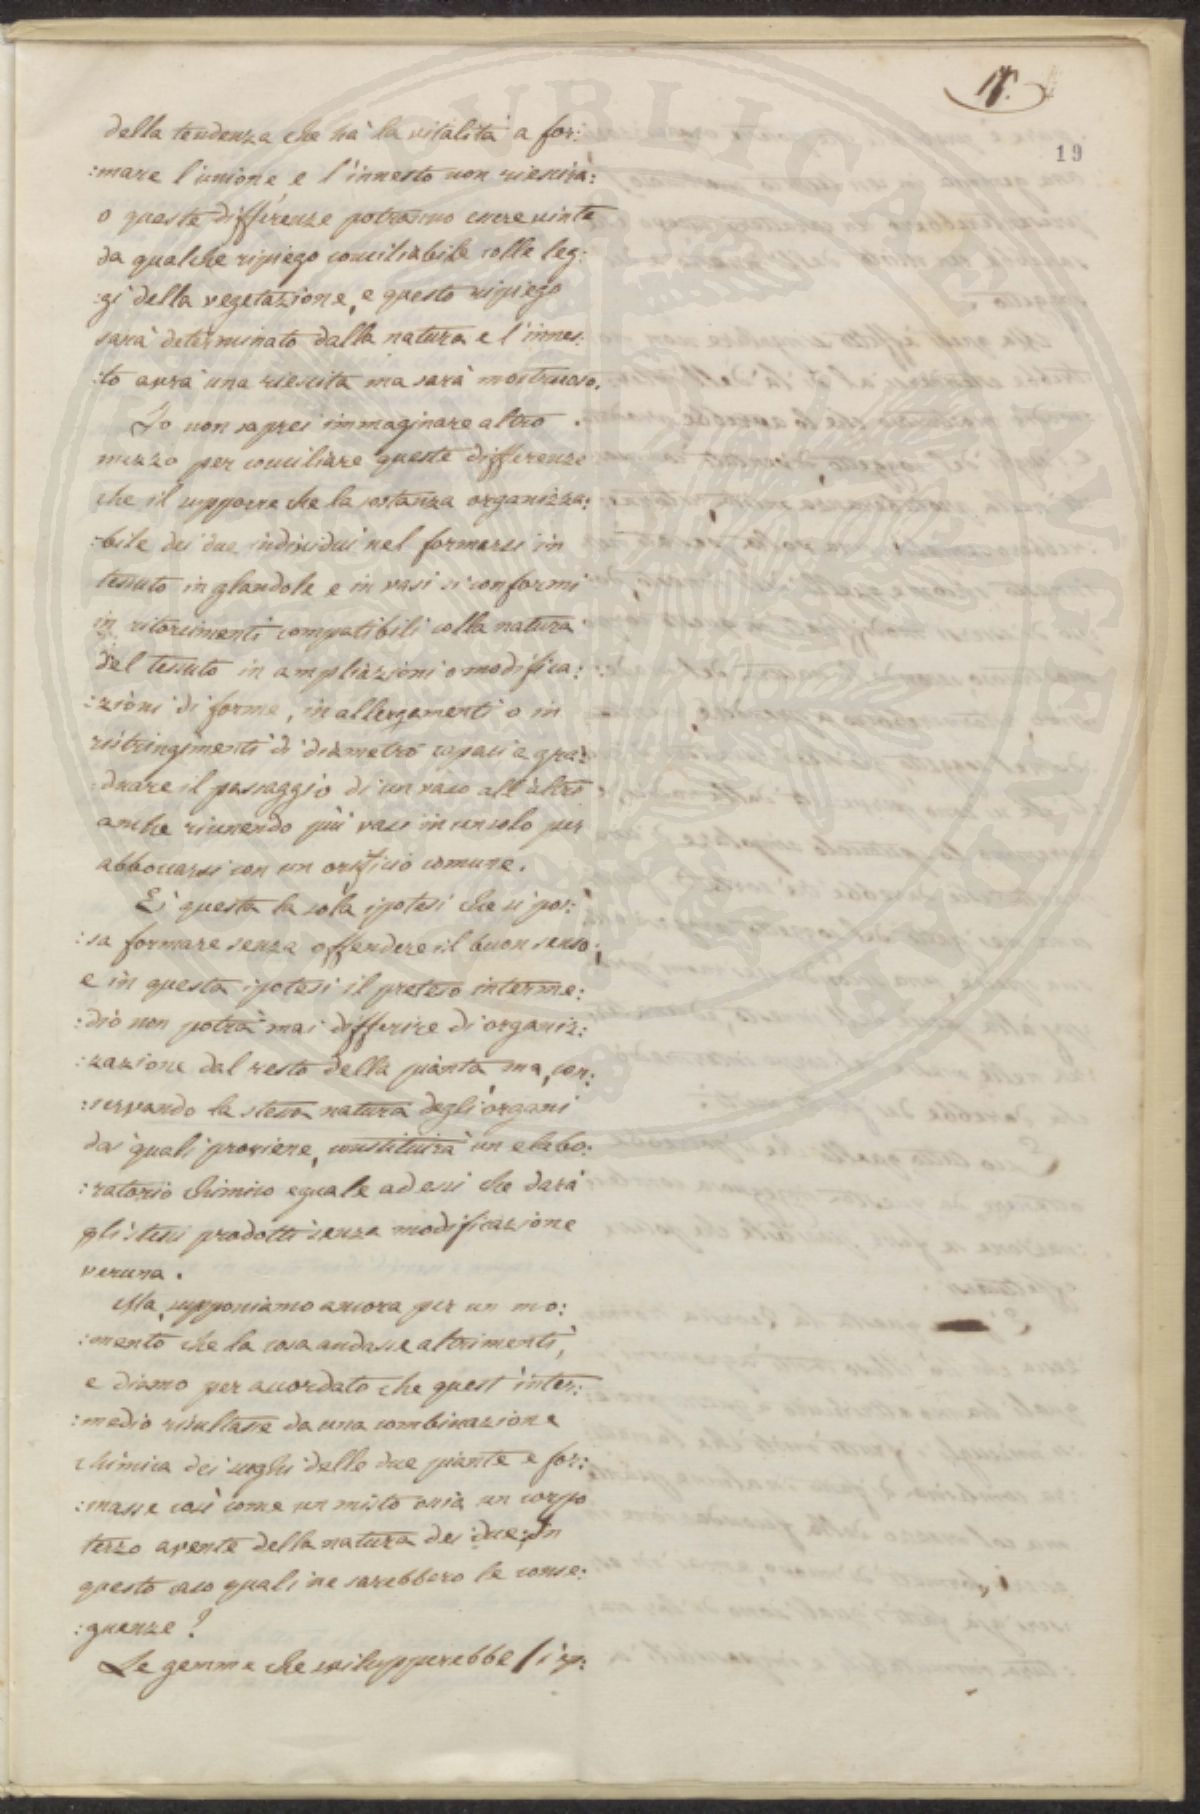 18.
19
della tendenza che hà la vitalità a for:
:mare l'unione e l'innesto non riescirà:
o queste differenze potranno essere vinte
da qualche ripiego conciliabile colle leg:
:gi della vegetazione, e questo ripiego
sarà determinato dalla natura e l'innes:
:to avrà una riescita ma sarà mostruoso.
Io non saprei immaginare altro
mezzo per conciliare queste differenze
che il supporre che la sostanza organizza:
:bile dei due individui nel formarsi in
tessuto in glandole e in vasi si conformi
in ritorcimenti compatibili colla natura
del tessuto in ampliazioni o modifica:
:zioni di forme, in allargamenti o in
ristringimenti di diametro capaci a gra:
:duare il passaggio di un vaso all'altro
anche riunendo più vasi in un solo per
abboccarsi con un orificio comune.
E' questa la sola ipotesi che si pos:
:sa formare senza offendere il buon senso,
e in questa ipotesi il preteso interme:
:dio non potrà mai differire di organiz:
:zazione dal resto della pianta, ma, con:
:servando la stessa natura degli organi
dai quali proviene, constituirà un elabo:
:ratorio chimico eguale ad essi che darà
gli stessi prodotti senza modificazione
veruna.
Ma, supponiamo ancora per un mo:
:mento che la cosa andasse altrimenti,
e diamo per accordato che quest'inter:
:medio risultasse da una combinazione
chimica dei sughi delle due piante e for:
:masse così come un misto ossia un corpo
terzo avente della natura dei due: In
questo caso quali ne sarebbero le conse:
:guenze?
Le gemme che svilupperebbe